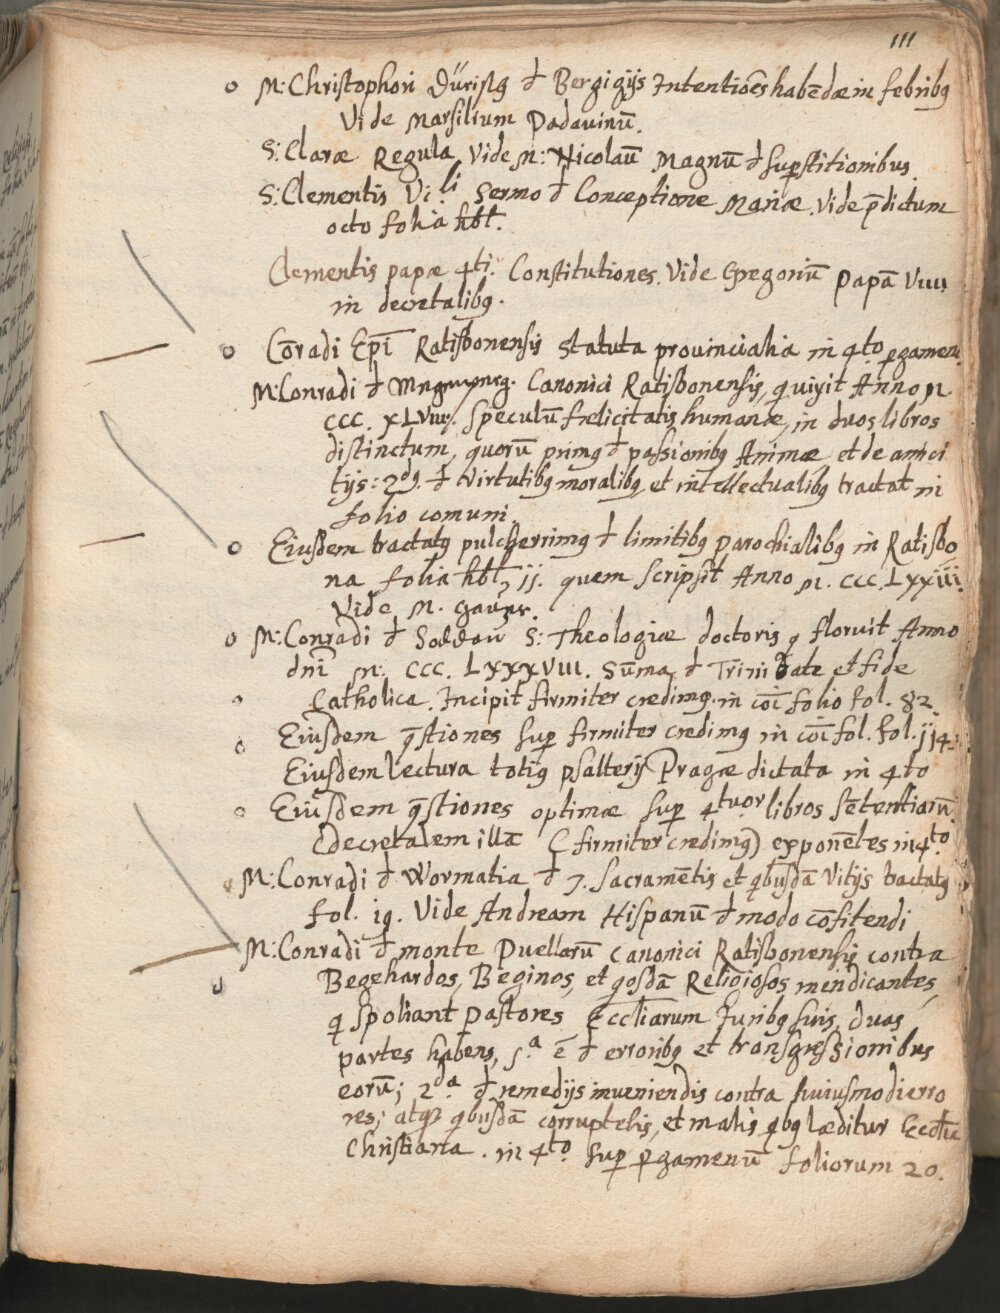 111
M: Christophori Düristꝯ đ Bergigijs Intentiōes habēdæ in febribꝯ
Vide Marsilium Padauinū.
S: Claræ Regula Vide M: Nicolaū Magnū đ Supstitionibus.
S: Clementis Vi.ti Sermo đ Conceptione Mariæ. Vide p̄dictum
octo folia hbt.
Clementis papæ 4ti. Constitutiones. Vide Gregoriū Papā Viiii
in decretalibꝯ.
Cōradi Epī Ratisbonensis Statuta prouincialia in 4to pgamen.
M: Conradi đ Canonici Ratisbonensis, q uixit Anno M
CCC. XLViii. Speculū fælicitatis humanæ, in duos libros
distinctum, quorū primꝯ đ passionibꝯ Animæ et de amici
tijs: 2dꝯ. đ Virtutibꝯ moralibꝯ et intellectualibꝯ tractat in
folio comuni.
Eiusdem tractatꝯ pulcherrimꝯ đ limitibꝯ parochialibꝯ in Ratisbo
na folia hbt, 11. quem scripsit Anno M. CCC. LXXiii.
Vide M.
M: Conradi đ Soldau S: Theologiæ doctoris q floruit Anno
dnī M: CCC. LXXXVIII. Sūma đ Trinitate et fide
Catholica. Incipit firmiter credimꝯ. in cōi folio fol. 82.
Eiusdem q̄stiones sup firmiter credimꝯ in cōi fol. fol. 114.
Eiusdem lectura totiꝯ psalterij Pragæ dictata in 4to
Eiusdem q̄stiones optimæ sup 4tuor libros sētentiarū.
decretalem illā (firmiter credimꝯ) exponētes in 4to
M: Conradi đ Wormatia đ 7. Sacramētis et qbusdā Vitijs tractatꝯ
fol. 19. Vide Andream Hispanū đ modo cōfitendi
M: Conradi đ monte Puellarū Canonici Ratisbonensis contra
Begehardos, Beginos, et qosdā Religiosos mendicantes,
q Spoliant Pastores Eccliarum Juribꝯ suis, duas
partes habens, 1a ē đ erroribꝯ et transgressionibus
eorū; 2da đ remedijs inueniendis contra huiusmodi erro
res; atqꝫ qbusdā corruptelis, et malis qbꝯ læditur Ecclia
Christiana. in 4to sup pgamenū foliorum 20.